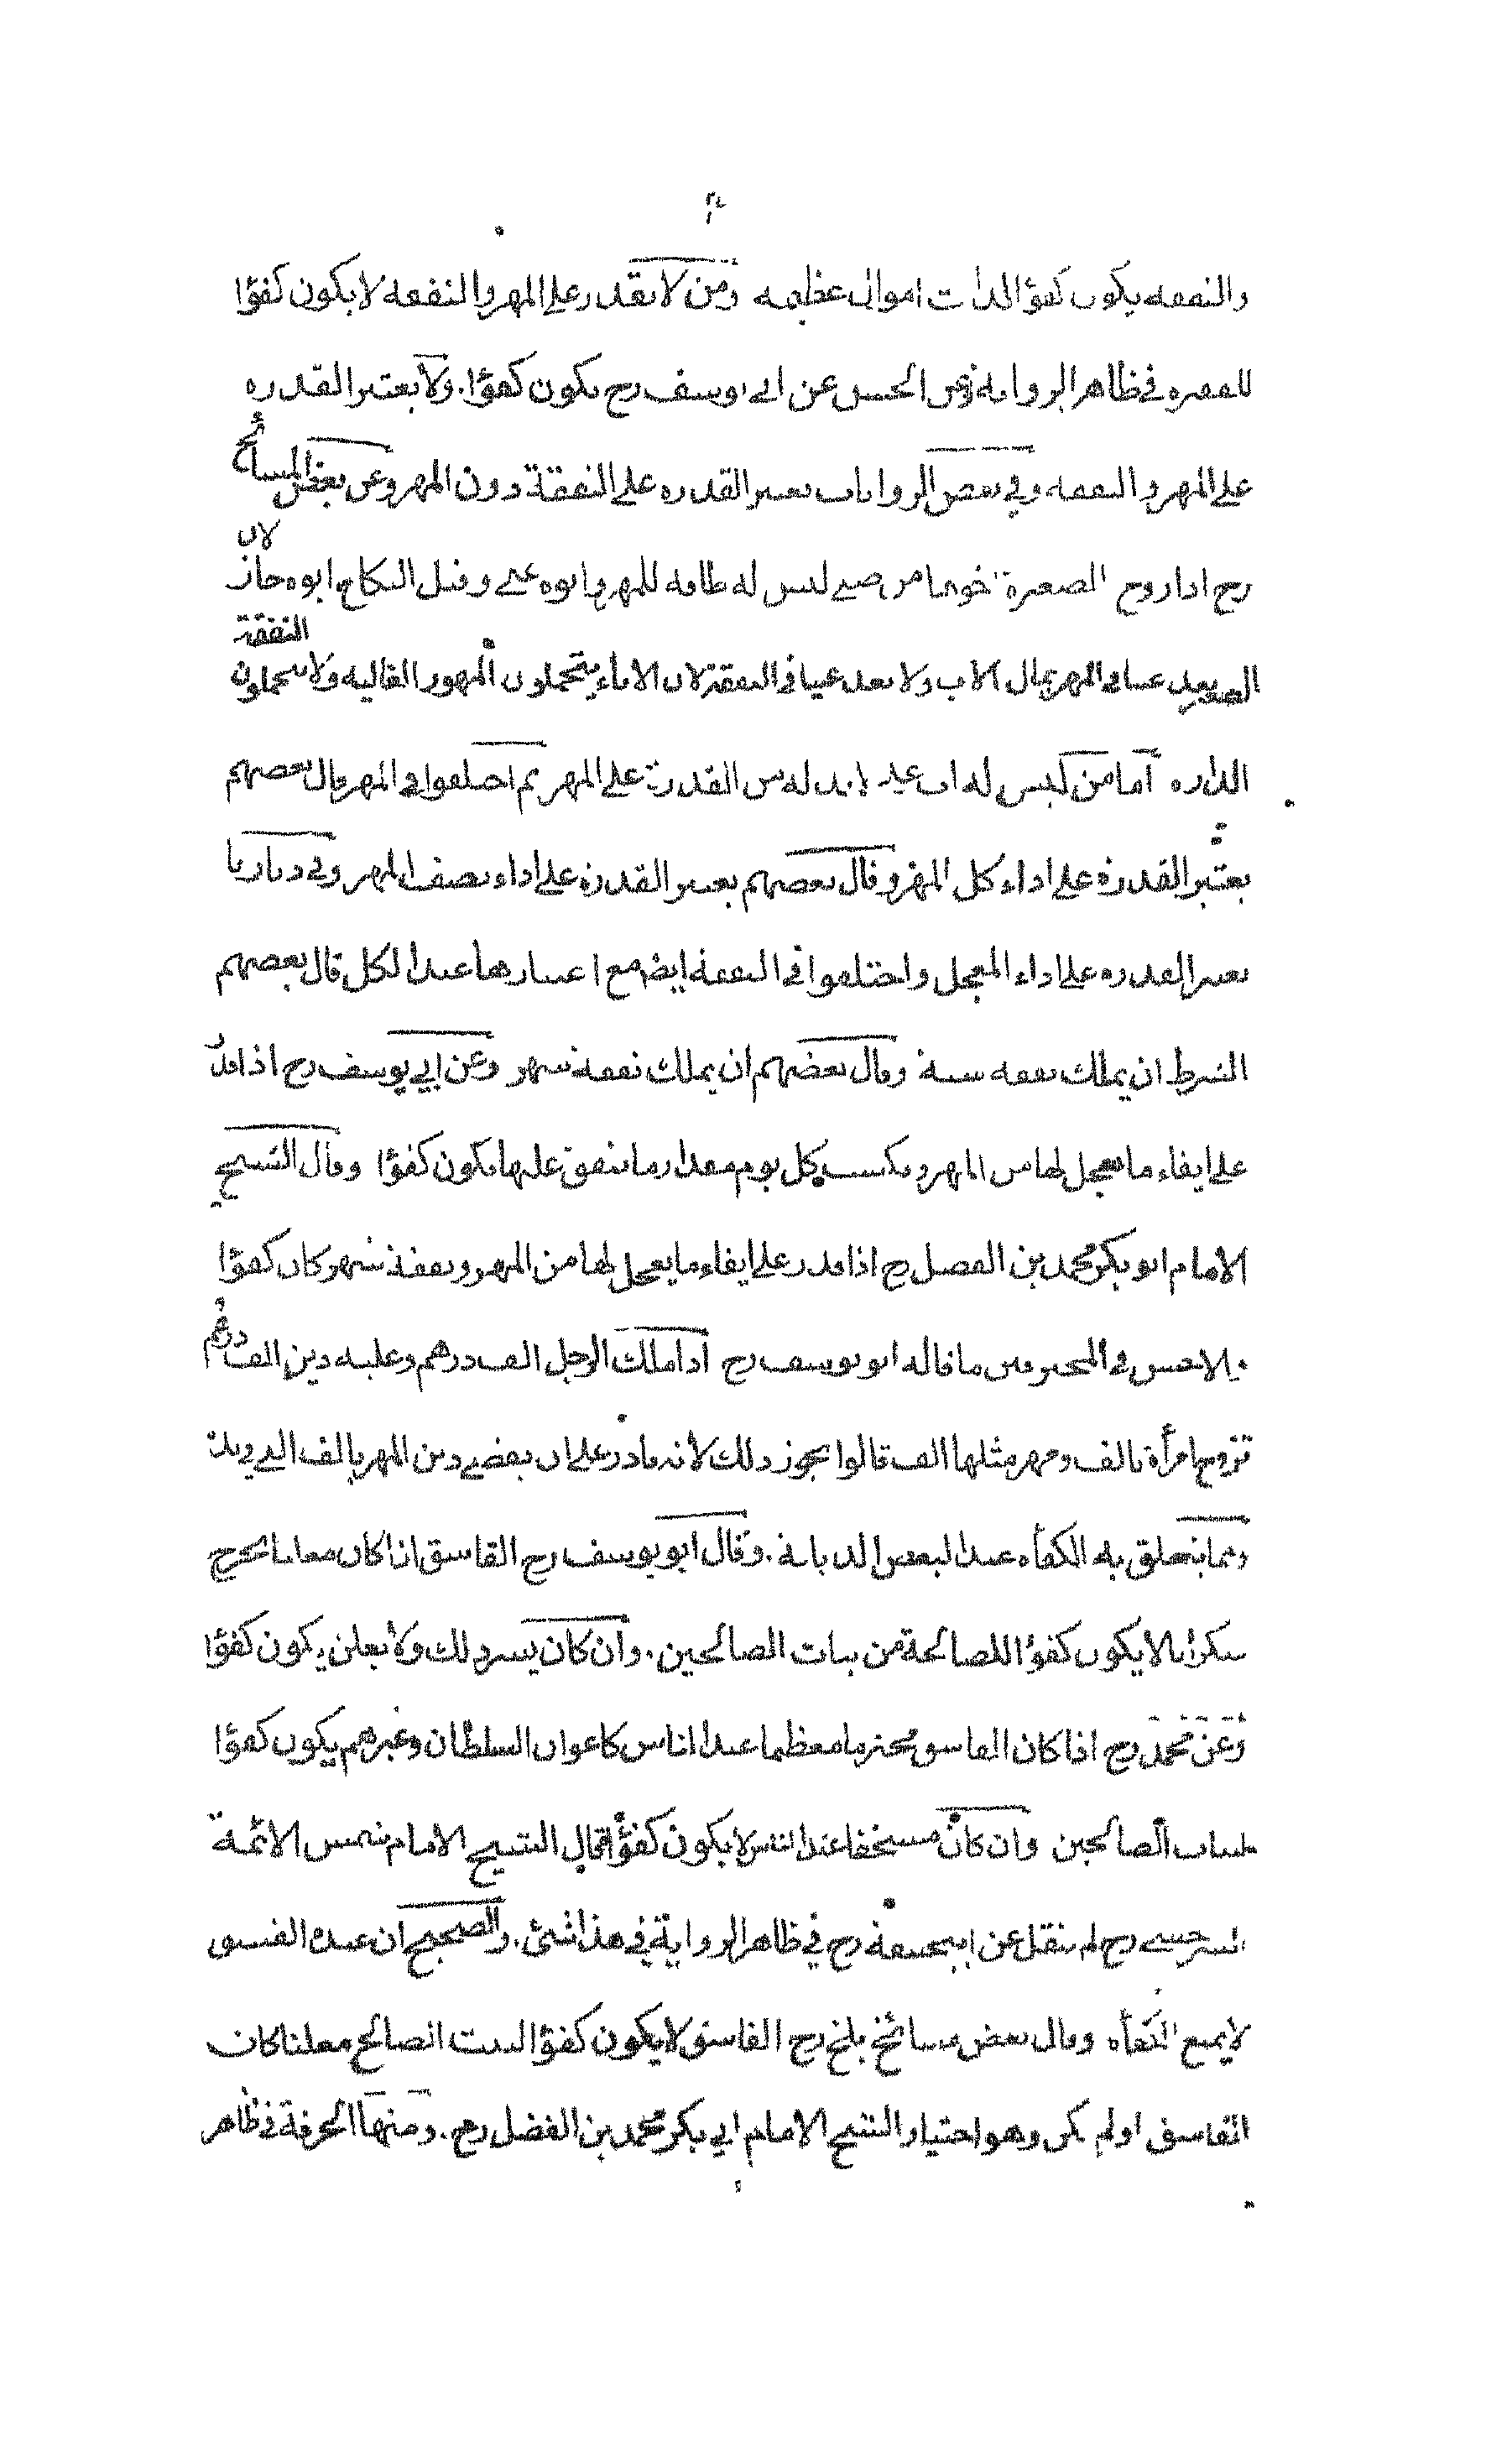 والنفقه يكون كفؤا لذات اموال عظيمه ومن لا يقدر على المهر والنفقه لا يكون كفؤا
للفقيره في ظاهر الروايه وعن الحسن عن ابي يوسف رح يكون كفؤا. ولا يعتبر القدره
على المهر والنفقه وفي بعض الروايات يعتبر القدره على النفقة دون المهر وعن بعض المشائخ
رح اذا زوج الصغيرة اخوها من صبي ليس له طاقه للمهر وابوه غني وقبل النكاح ابوه جاز لان
الصغير يعد غنيا في المهر بمال الاب ولا يعد غنيا في النفقة لان الاباء يتحملون المهور الغاليه ولا يتحملون النفقة
الداره اما من ليس له اب غني لا بد له من القدرة على المهر ثم اختلفوا في المهر قال بعضهم
يعتبر القدرة على اداء كل المهر وقال بعضهم يعتبر القدرة على اداء نصف المهر وفي ديارنا
يعتبر القدره على اداء المعجل واختلفوا في النفقة ايضا مع اعتبارها عند الكل قال بعضهم
الشرط ان يملك نفقه سنة وقال بعضهم ان يملك نفقة شهر وعن ابي يوسف رح اذا قدر
على ايفاء ما يعجل لها من المهر ويكسب كل يوم مقدار ما ينفق عليها يكون كفؤا وقال الشيخ
الامام ابو بكر محمد بن الفضل رح اذا قدر على ايفاء ما يعجل لها من المهر ونفقة شهر كان كفؤا
والاحسن في المحترفين ما قاله ابو يوسف رح اذا ملك الرجل الف درهم وعليه دين الف درهم
تزوج امرأة بالف ومهر مثلها الف قالوا يجوز ذلك لانه قادر على ان يقضي دين المهر بالف التي في يده
ومما يتعلق به الكفأه عند البعض الديانة. وقال ابو يوسف رح الفاسق اذا كان معلنا يخرج
سكرانا لا يكون كفؤا للصالحة من بنات الصالحين. وان كان يسر ذلك ولا يعلن يكون كفؤا
وعن محمد رح اذا كان الفاسق محترما معظما عند الناس كاعوان السلطان وغيرهم يكون كفؤا
لبنات الصالحين وان كان مستخفا عند الناس لا يكون كفؤا قال الشيخ الامام شمس الائمة
السرخسي رح لم ينقل عن ابيحنيفة رح في ظاهر الرواية في هذا شئ. والصحيح ان عنده الفسق
لا يمنع الكفأه وقال بعض مشائخ بلخ رح الفاسق لا يكون كفؤا لبنت الصالح معلنا كان
الفاسق او لم يكن وهو اختيار الشيخ الامام ابي بكر محمد بن الفضل رح. ومنها الحرفة في ظاهر